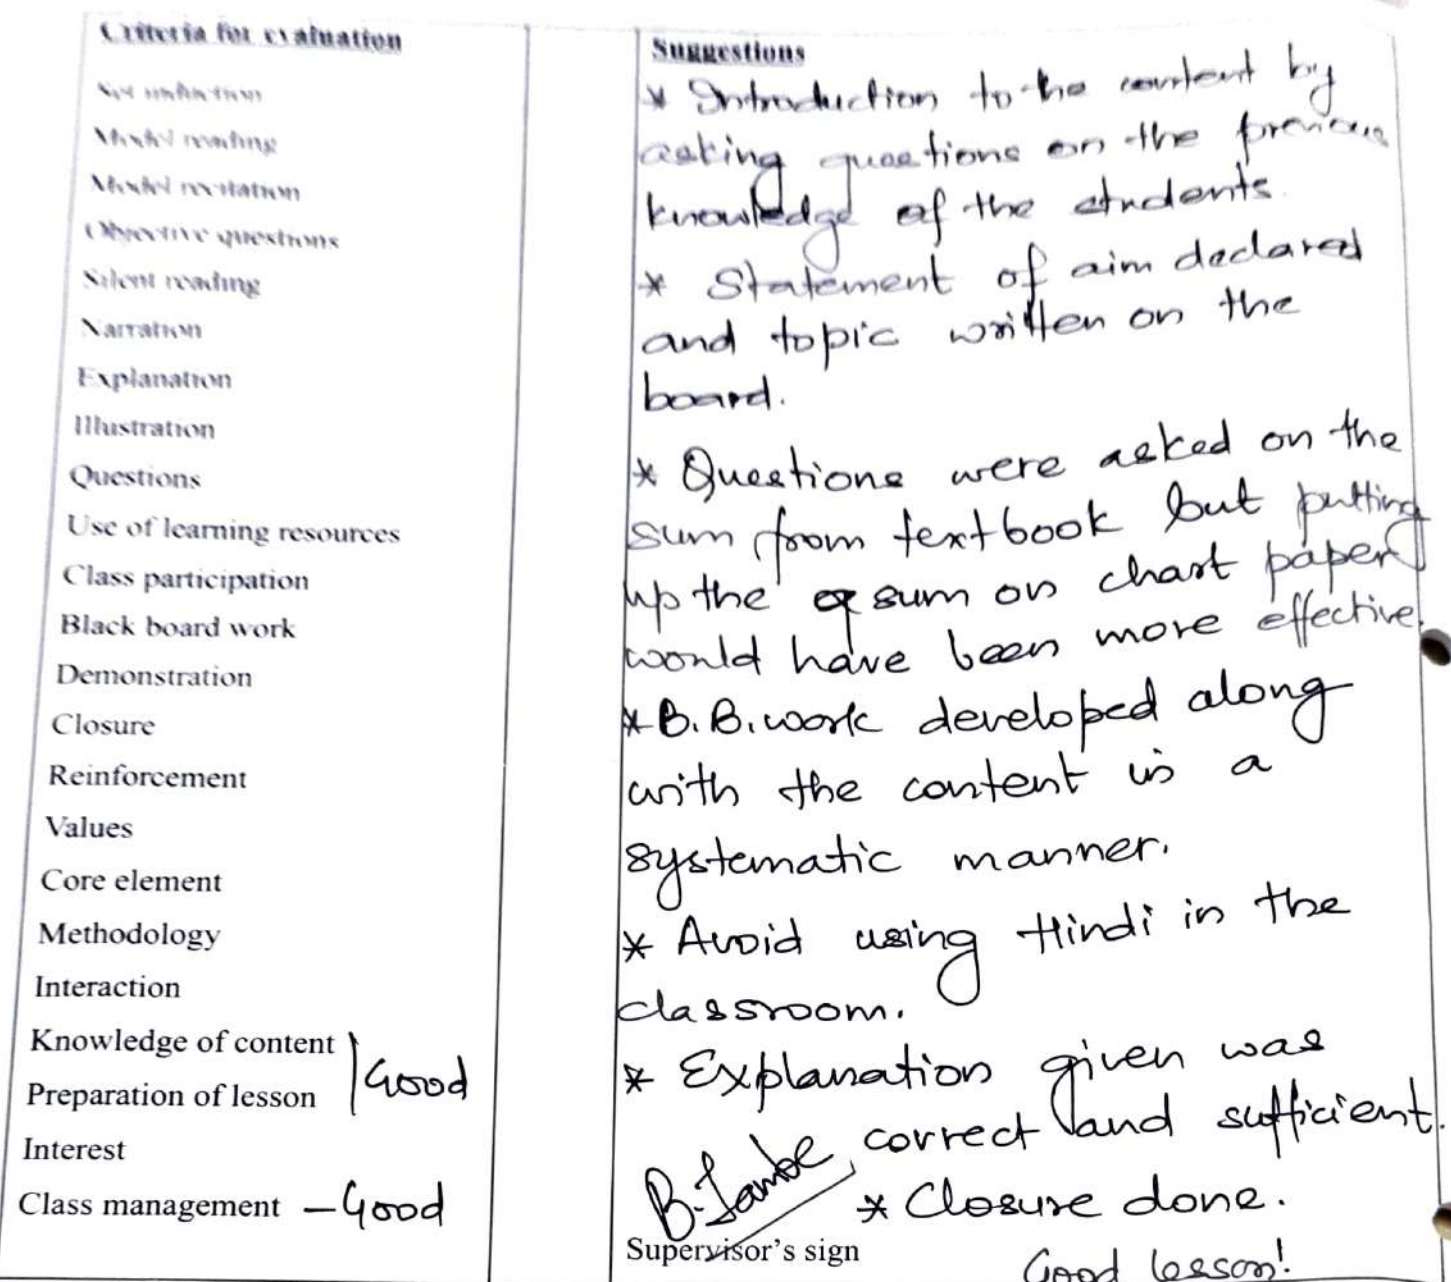 Criteria for evaluation
Set induction
Model reading
Model recitation
Objective questions
Silent reading
Narration
Explanation
Illustration
Questions
Use of learning resources
Class participation
Black board work
Demonstration
Closure
Reinforcement
Values
Core element
Methodology
Interaction
Knowledge of content
Preparation of lesson
Good
Interest
Class management - Good
Suggestions
* Introduction to the content by
asking questions on the previous
knowledge of the students.
* Statement of aim declared
and topic written on the
board.
* Questions were asked on the
sum from textbook but putting
up the sum on chart paper
would have been more effective.
* B.B. work developed along
with the content in a
systematic manner.
* Avoid using Hindi in the
classroom.
* Explanation given was
correct and sufficient.
* Closure done.
Supervisor's sign
Good lesson!